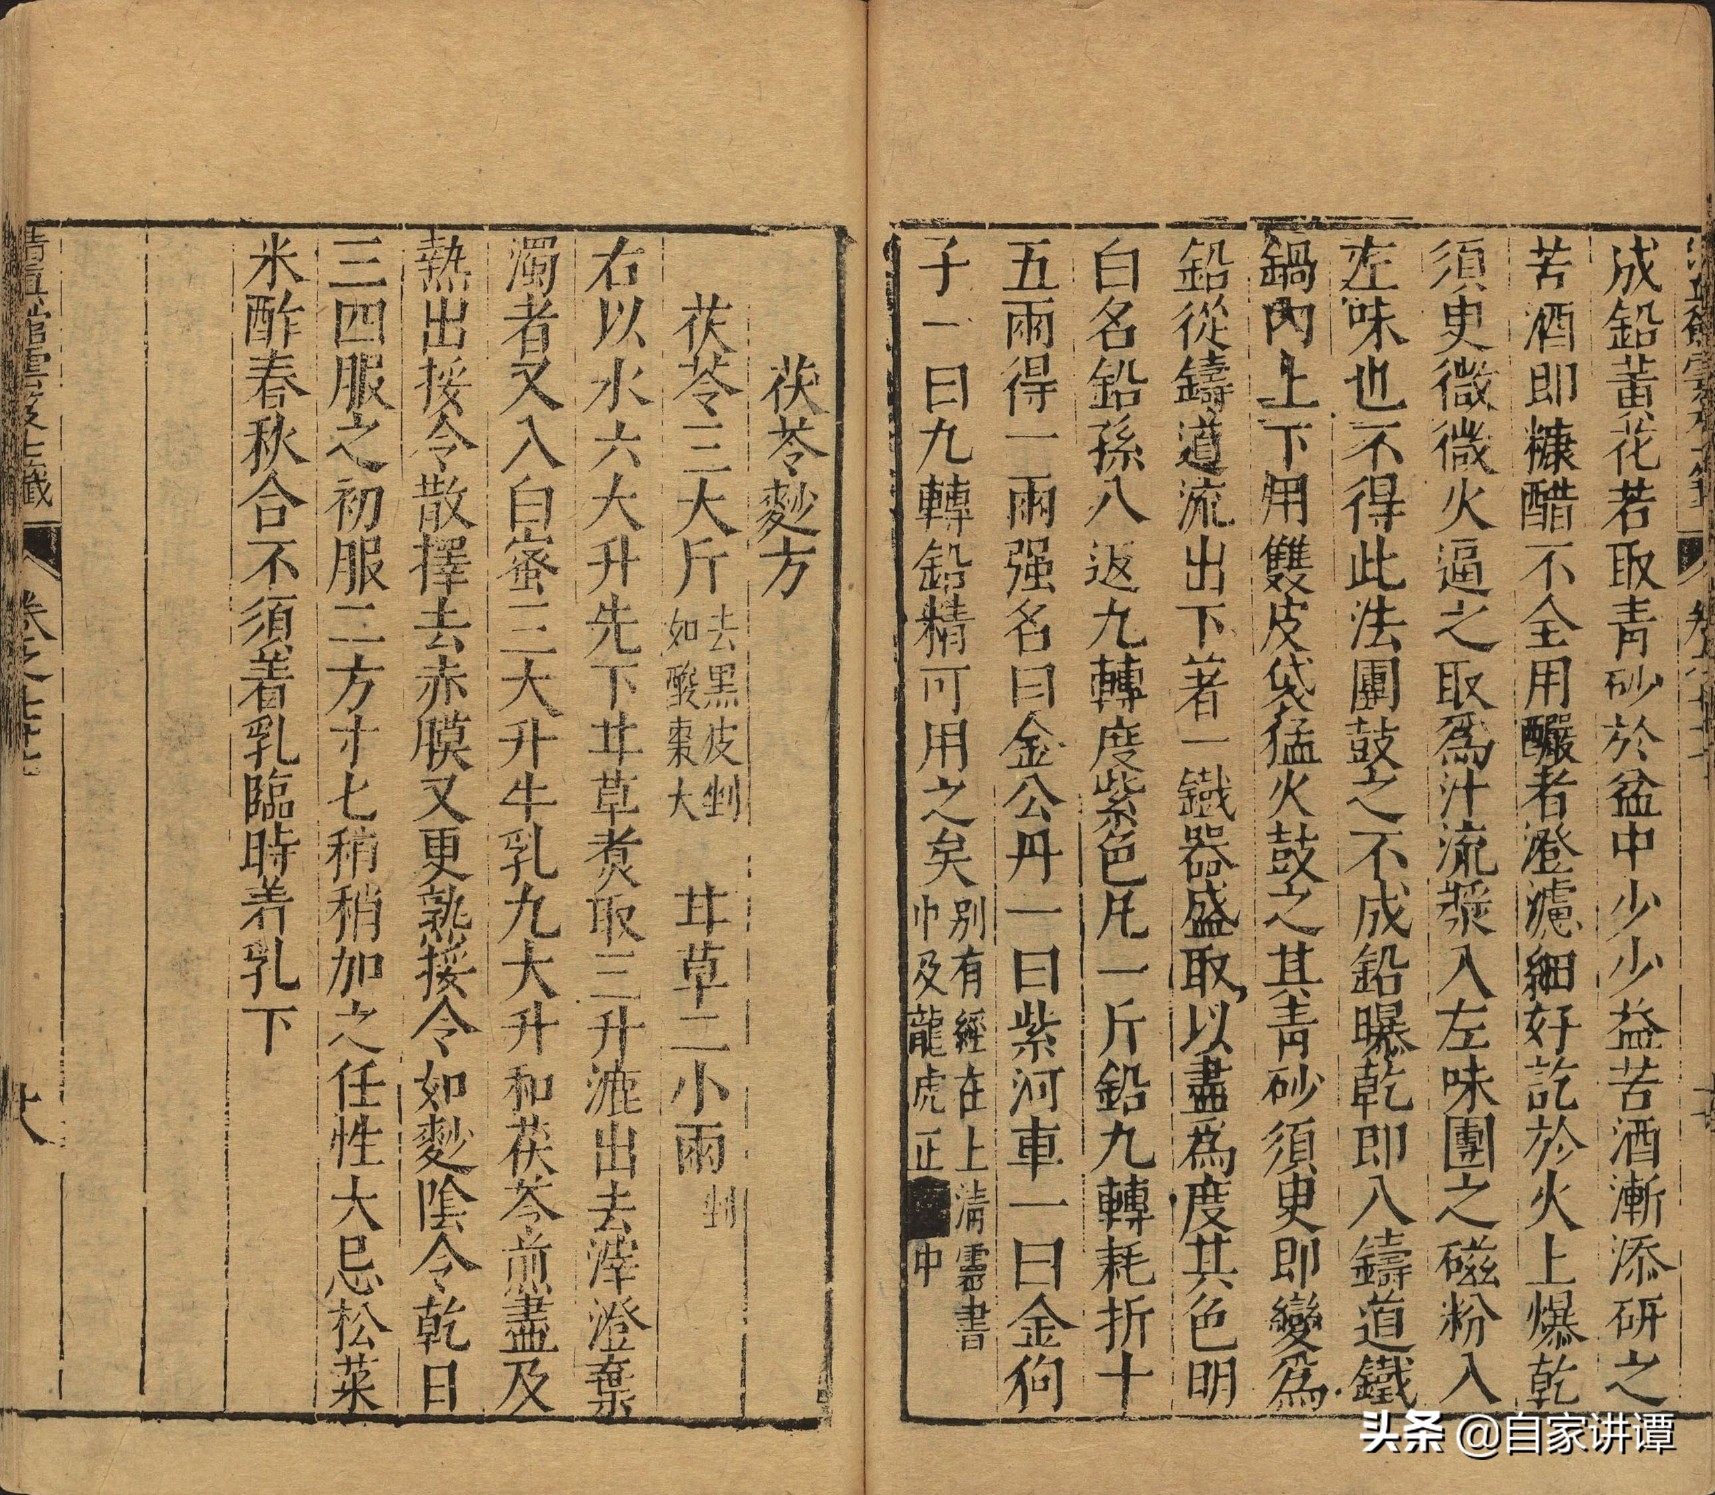 成鉛黃花若取青砂於盆中少少益苦酒漸添研之
苦酒即糠醋不全用釅者澄濾細好訖於火上爆乾
須臾微微火逼之取為汁流漿入左味團之磁粉入
左味也不得此法團鼓之不成鉛曝乾即入鑄道鐵
鍋內上下用雙皮袋猛火鼓之其青砂須臾即變為
鉛從鑄道流出下著一鐵器盛取以盡為度其色明
白名鉛孫八返九轉度紫色凡一斤鉛九轉耗折十
五兩得一兩强名曰金公丹一曰紫河車一曰金狗
子一曰九轉鉛精可用之矣別有經在上清靈書中及龍虎正中
茯苓麨方
茯苓三大斤去黑皮剉如酸棗大 甘草二小兩剉
右以水六大升先下甘草煑取三升漉出去滓澄棄
濁者又入白蜜三大升牛乳九大升和茯苓煎盡及
熱出挼令散擇去赤膜又更熟挼令如麨陰令乾日
三四服之初服二方寸七稍稍加之任性大忌松菜
米酢春秋合不須着乳臨時着乳下
卷之七十七
头条 @自家讲谭